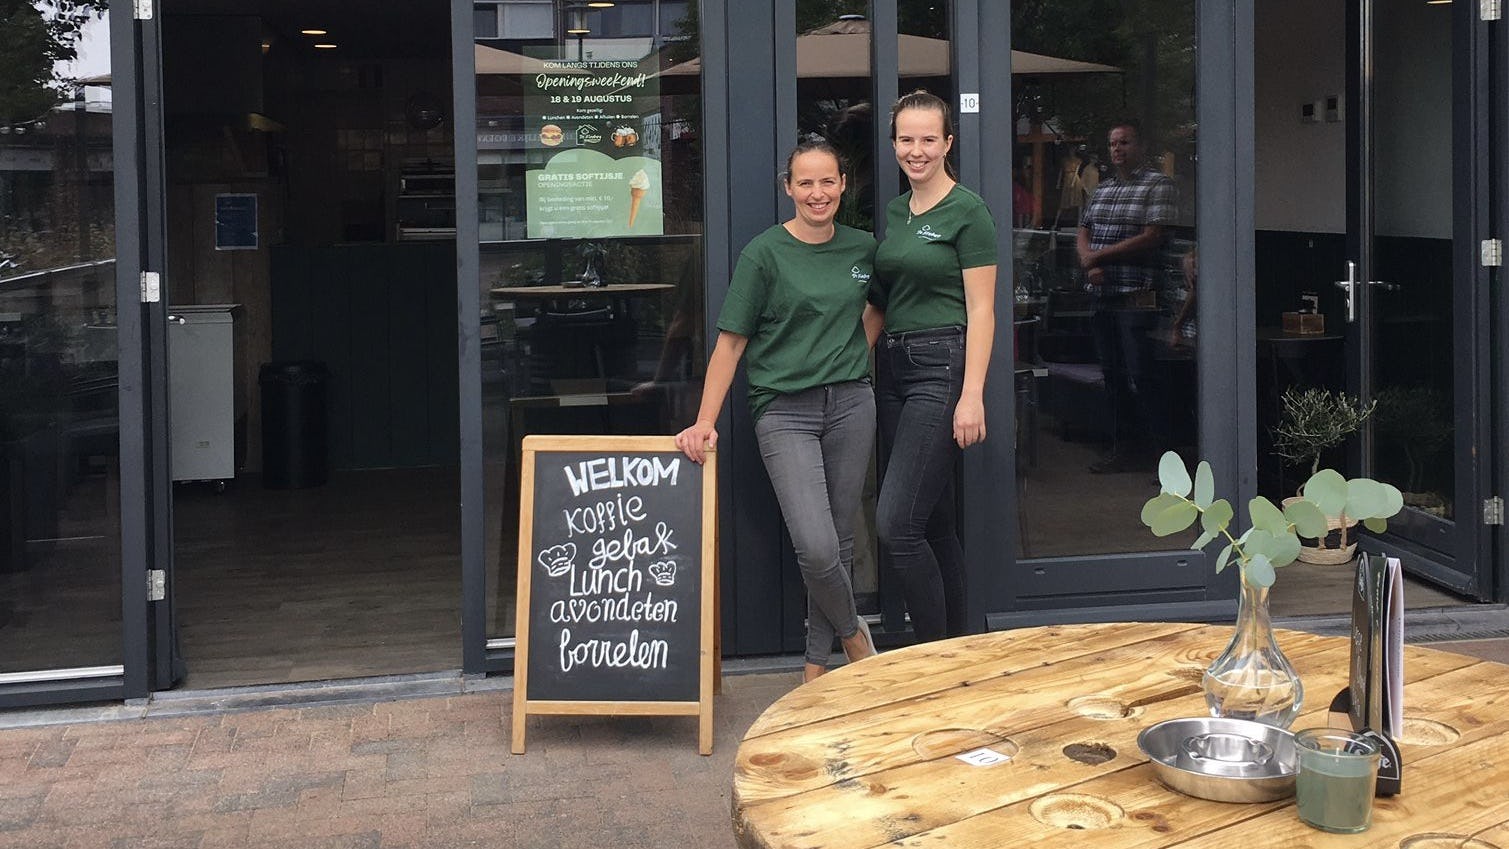 KOM LANGS TIJDENS ONS
Openingsweekend!
18 & 19 AUGUSTUS
Kom gezellig:
Lunchen Avondeten Afhalen Borrelen
GRATIS SOFTIJSJE
OPENINGSACTIE
Bij besteding van min. € 10,-
krijgt u een gratis softijsje!
-10-
WELKOM
Koffie
gebak
Lunch
avondeten
borrelen
10